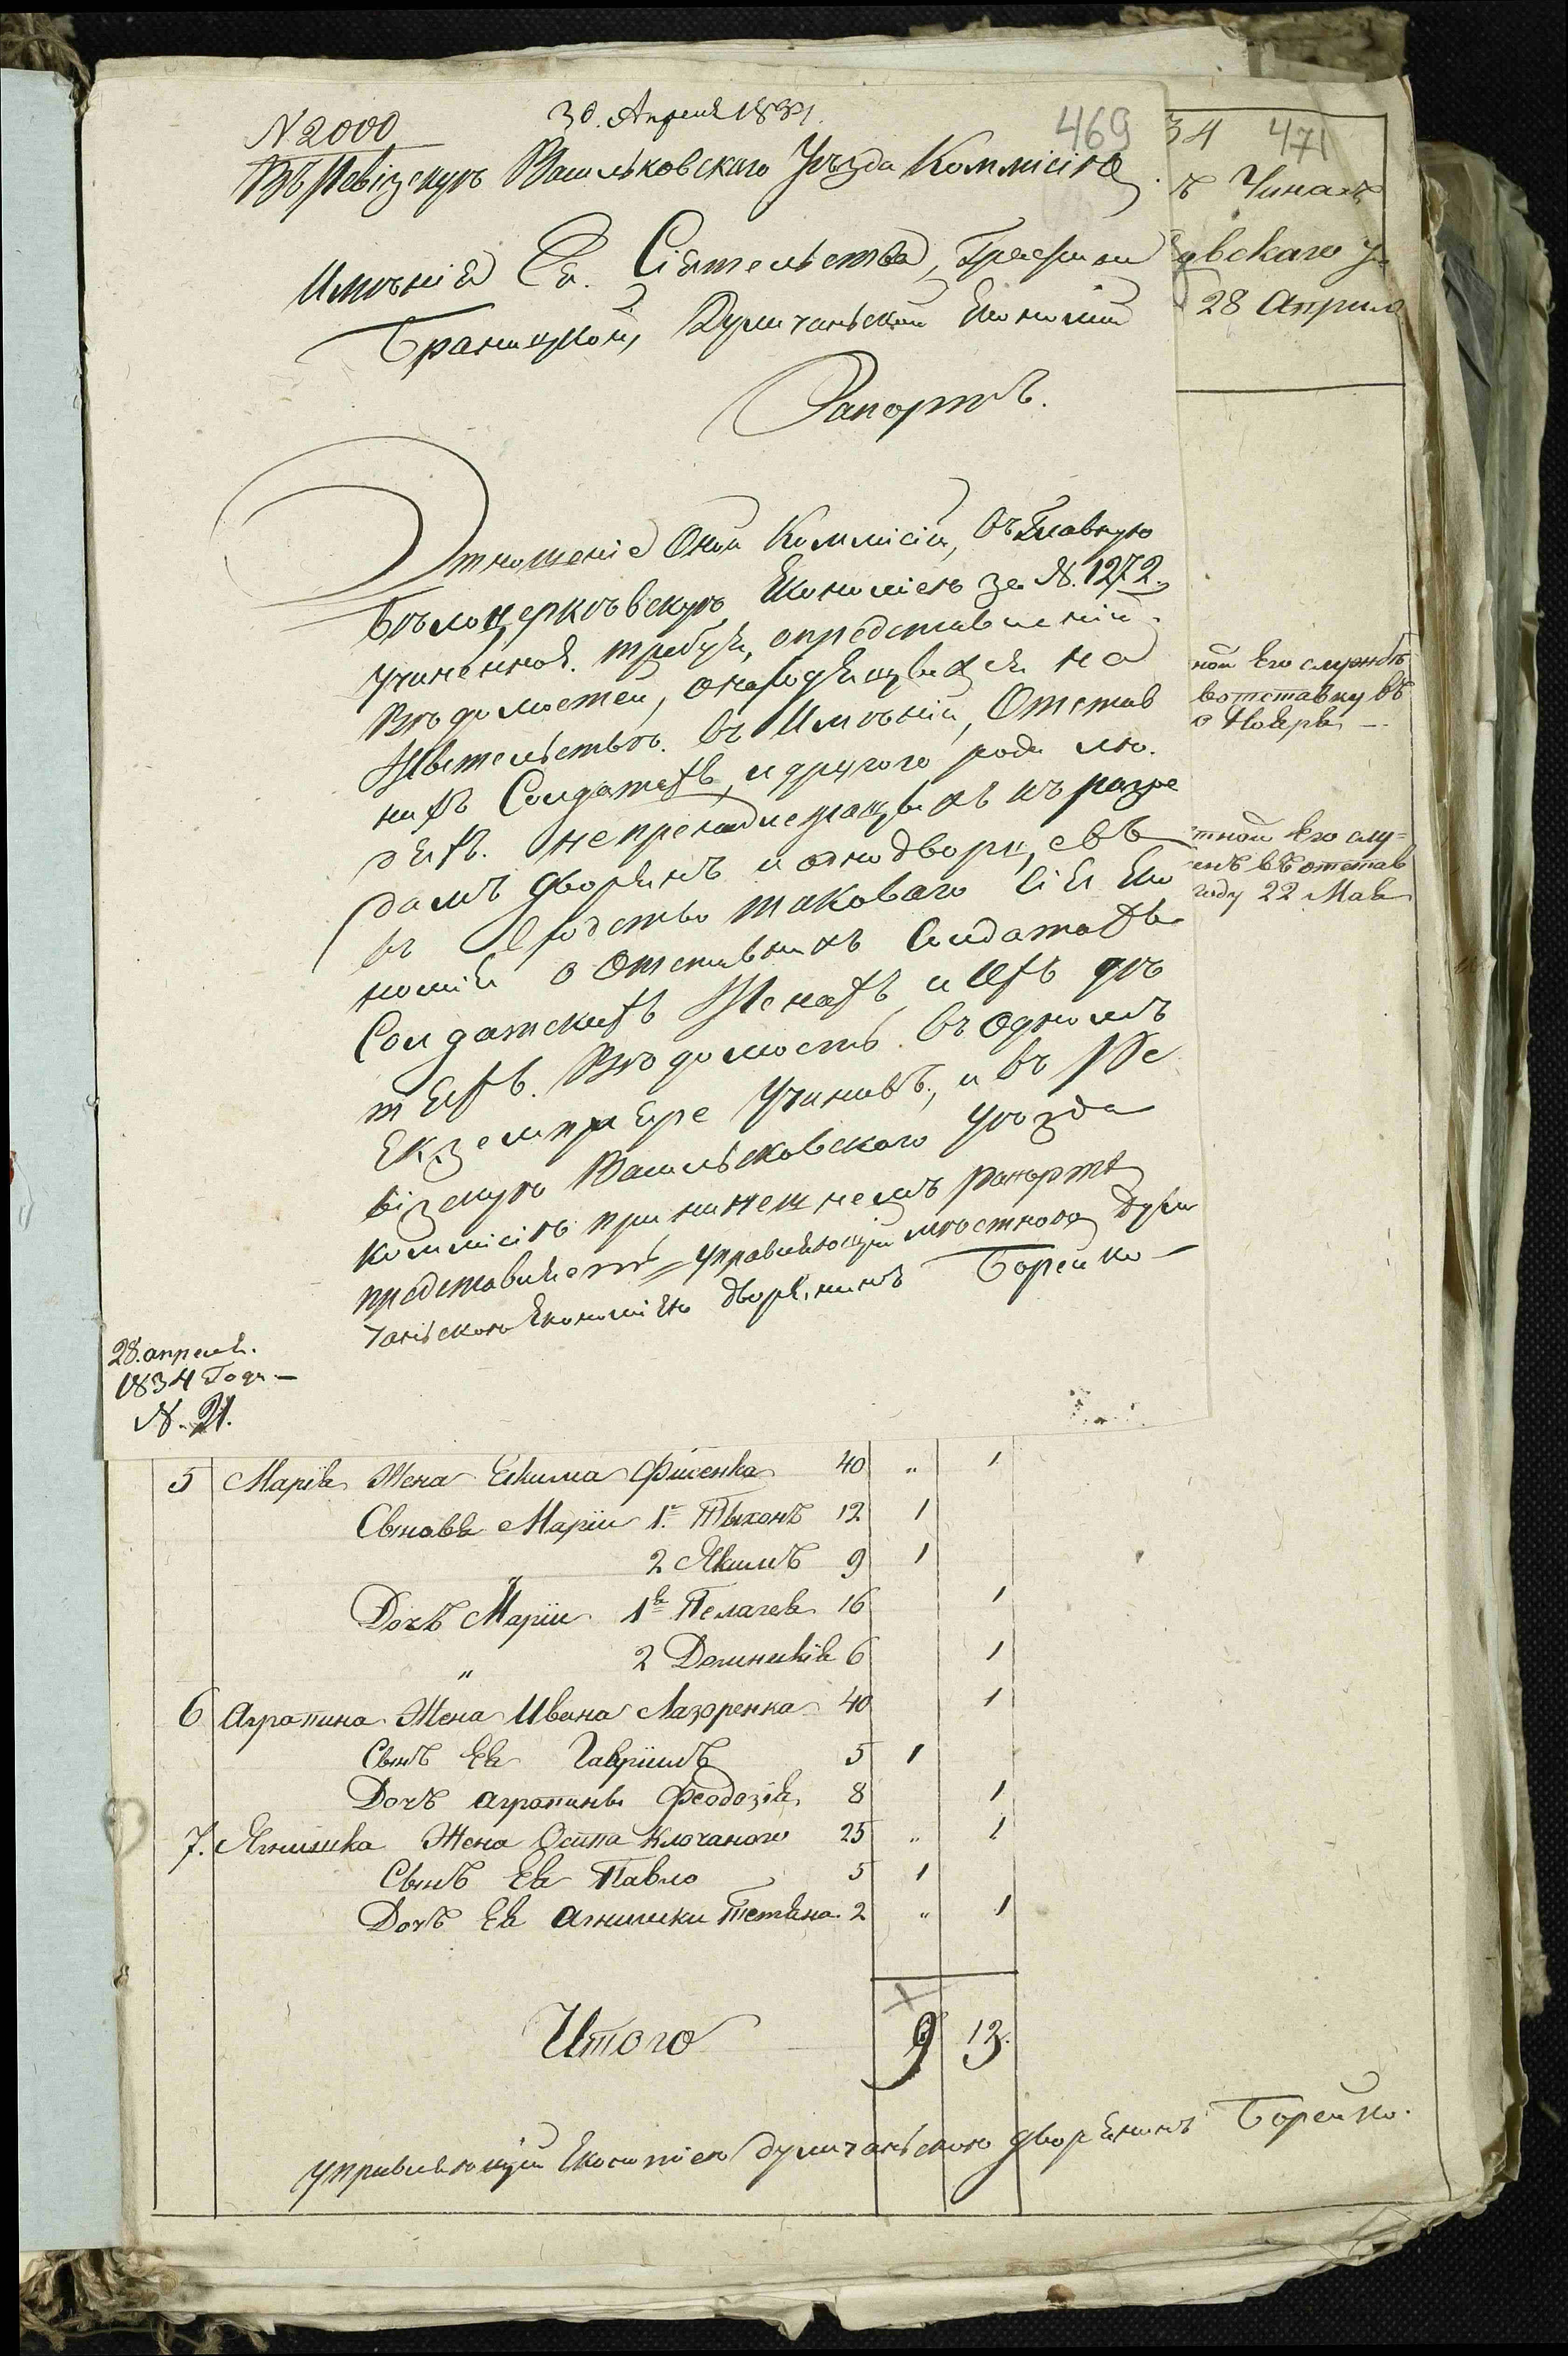 N 2000
30. Апреля 1834.
469
Въ Ревізскую Васильковскаго Уѣзда Коммісію
Имѣнія Ея Сіятельства, Графини
Браницкой, Думичанской Економіи
Рапортъ.
Отношеніе Оной Коммісіи, въ Главную
Бѣлоцерковскую Економію за N. 1272.
учиненное. требуя, о представленій.
Вѣдомостей, о находящихся на
Жительствѣ. въ Имѣніи, Отстав
ныхъ Солдатахъ, и другого рода лю.
дяхъ. не пренадлежащихъ къ разря
дамъ дворянъ и однодворцевъ
таковаго Сія Еко
номія о Отставныхъ Солдатахъ
Солдатскихъ Женахъ и Ихъ дѣ
тяхъ. Вѣдомость. въ Одномъ
Екземплярe Учинивъ, и въ Ре
візскую Васильковского уѣзда
Коммісію при нинешнемъ рапортѣ
представляетъ управляющій мѣстною Думи
чанскою Економіею дворянинъ Борейко
28. апреля.
1834 Года
N. 21.
34 471
ъ Чинахъ
овскаго у=
28 Априля
ной Его службѣ
в отставку въ
о Ноября —
тной Его слу=
енъ въ отстав
году 22 Мая
5 Марія Жена Екима Фисенка 40 „ 1
Сынова Маріи 1. Тыхонъ 12 1
„ 2 Якимъ 9 1
Дочъ Маріи 1я Пелагея 16 1
„ 2 Доминикія 6 1
6 Аграпина Жена Ивана Лазоренка 40 1
Сынъ Ея Гавріилъ 5 1
Дочъ Аграпины Феодозія 8 1
7. Ягнишка Жена Осипа Клочаного 25 „ 1
Сынъ Ея Павло 5 1
Дочъ Ея Агнишки Тетяна 2 „ 1
Итого 9 13.
управляющій Економіею думичанскою дворянинъ Борейко.